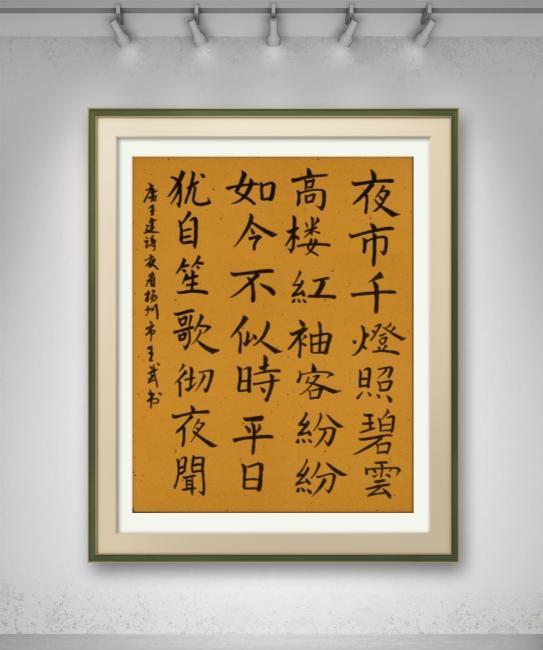 夜市千燈照碧雲
高楼紅袖客紛紛
如今不似時平日
犹自笙歌彻夜聞
唐王建詩夜看揚州市王武书